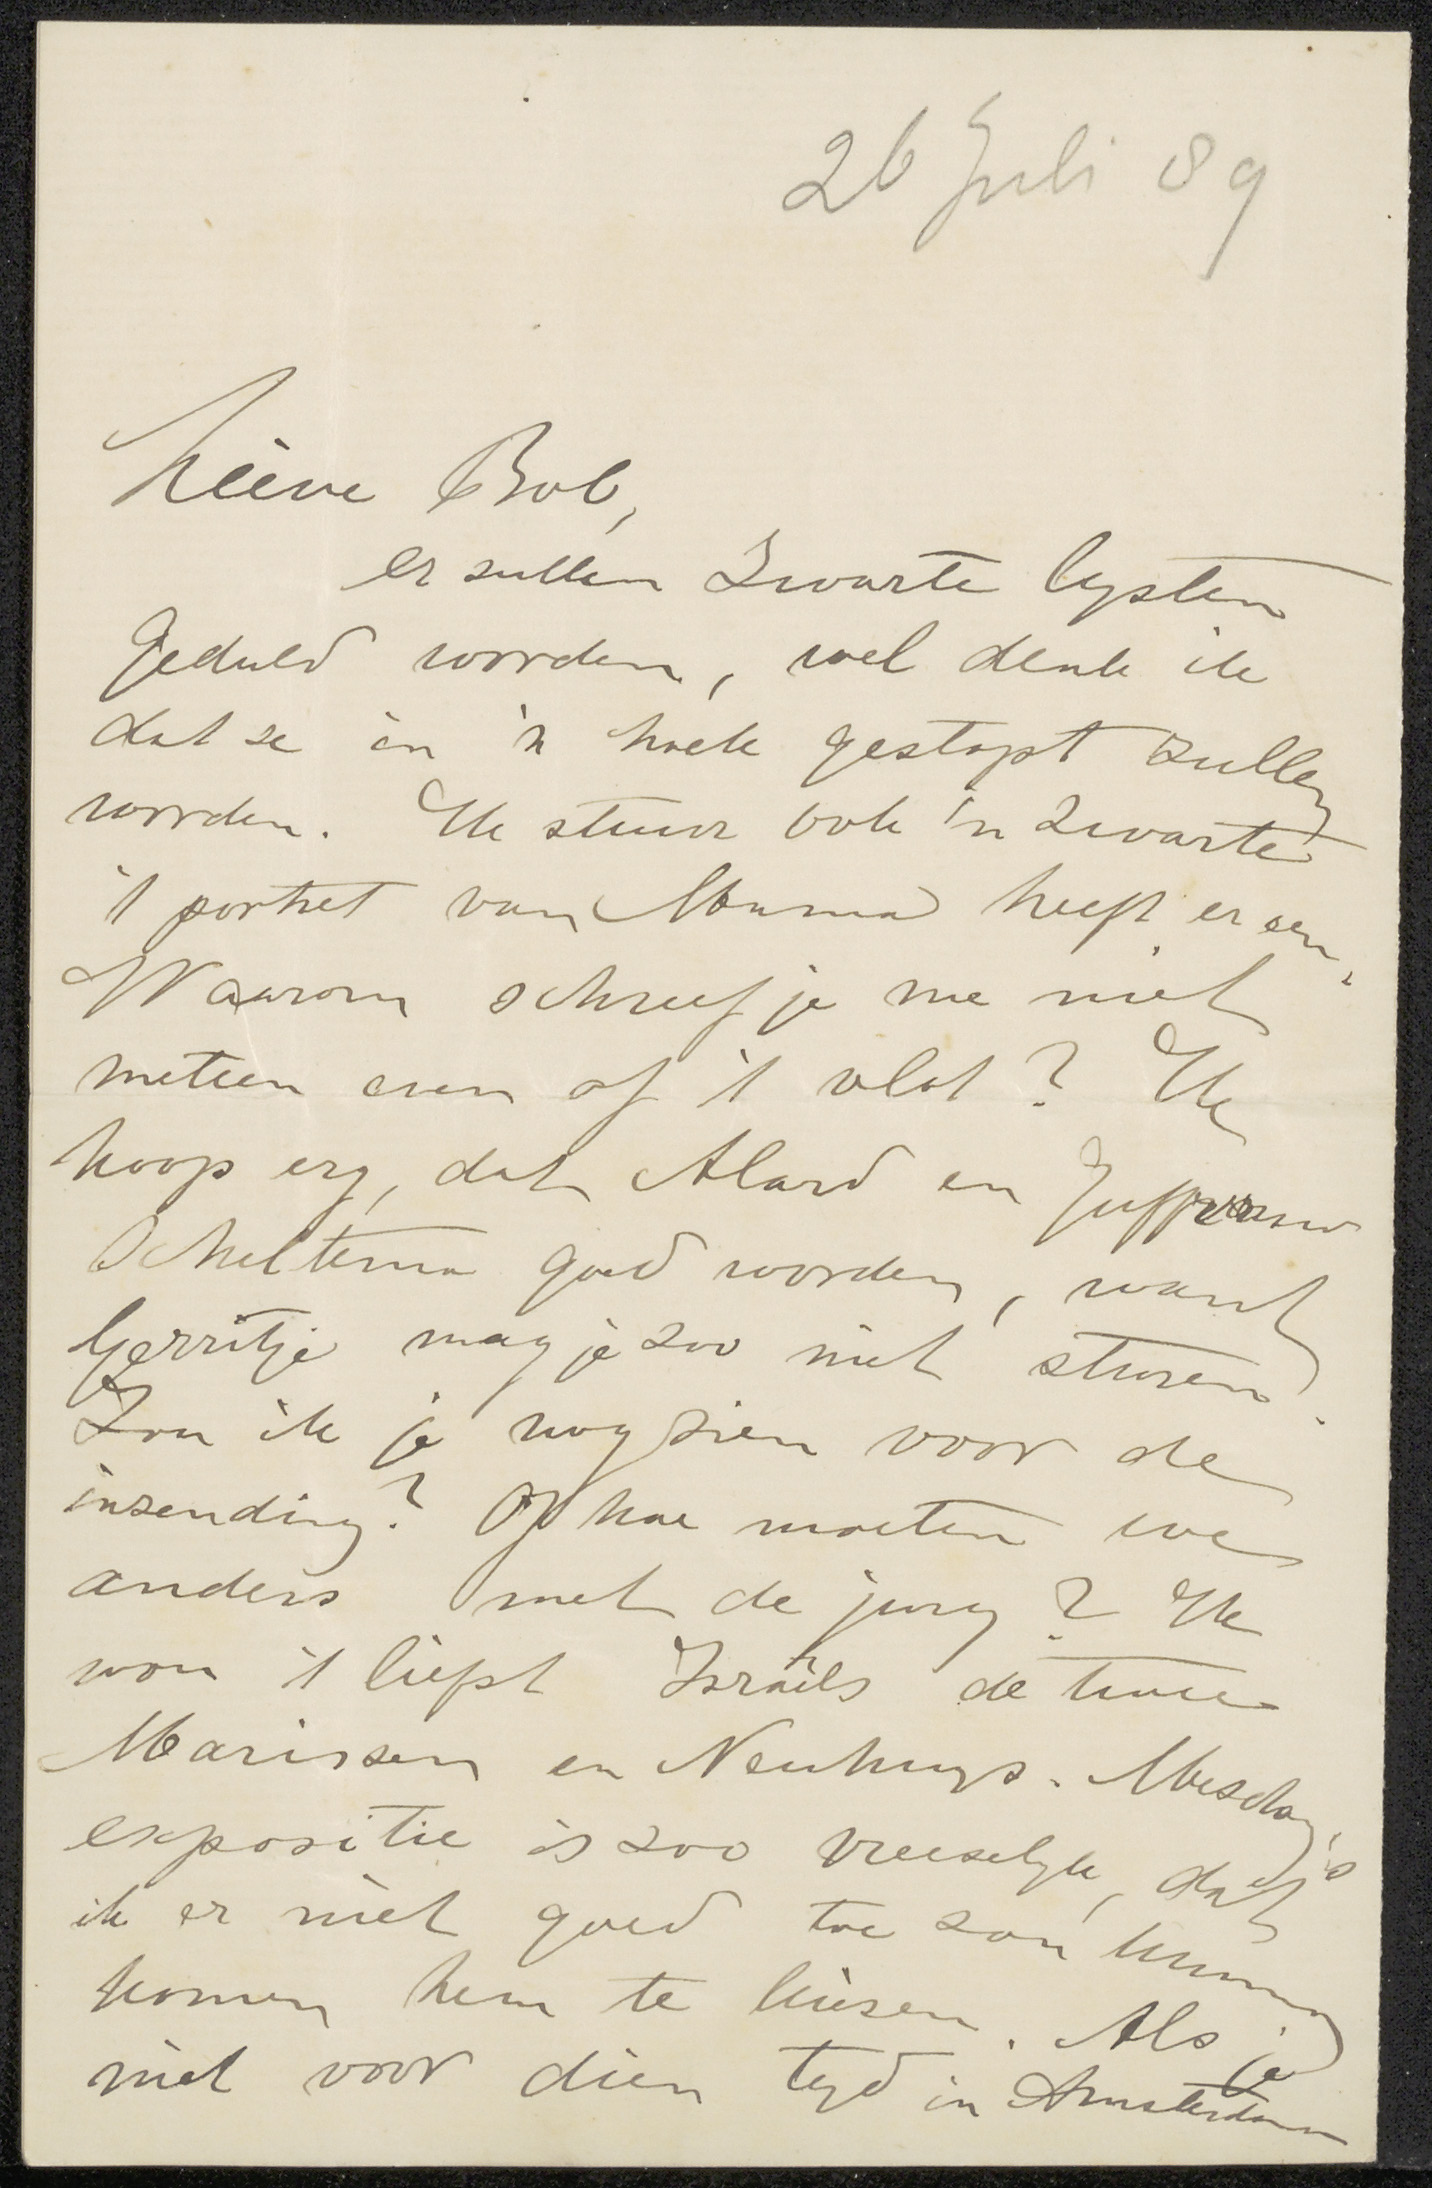 26 Juli 89
Lieve Bob,
er zullen zwarte lysten
geduld worden, wel denk ik
dat ze in 'n hoek gestopt zullen
worden. Ik stuur ook 'n zwarte
't portret van Mama heeft er een.
Waarom schreef je me niet
meteen even of 't vlot? Ik
hoop erg, dat Alard en Juffrouw
Scheltema goed worden, want
Gerritje mag je zoo niet sturen.
Zou ik je nog zien voor de
inzending? Of hoe moeten we
anders met de jury? Ik
wou 't liefst Israëls de twee
Marissen en Neuhuys. Mesdag's
expositie is zoo vreeselyk, dat
ik er niet goed toe zou kunnen
komen hem te kiezen. Als je
niet voor dien tyd in Amsterdam